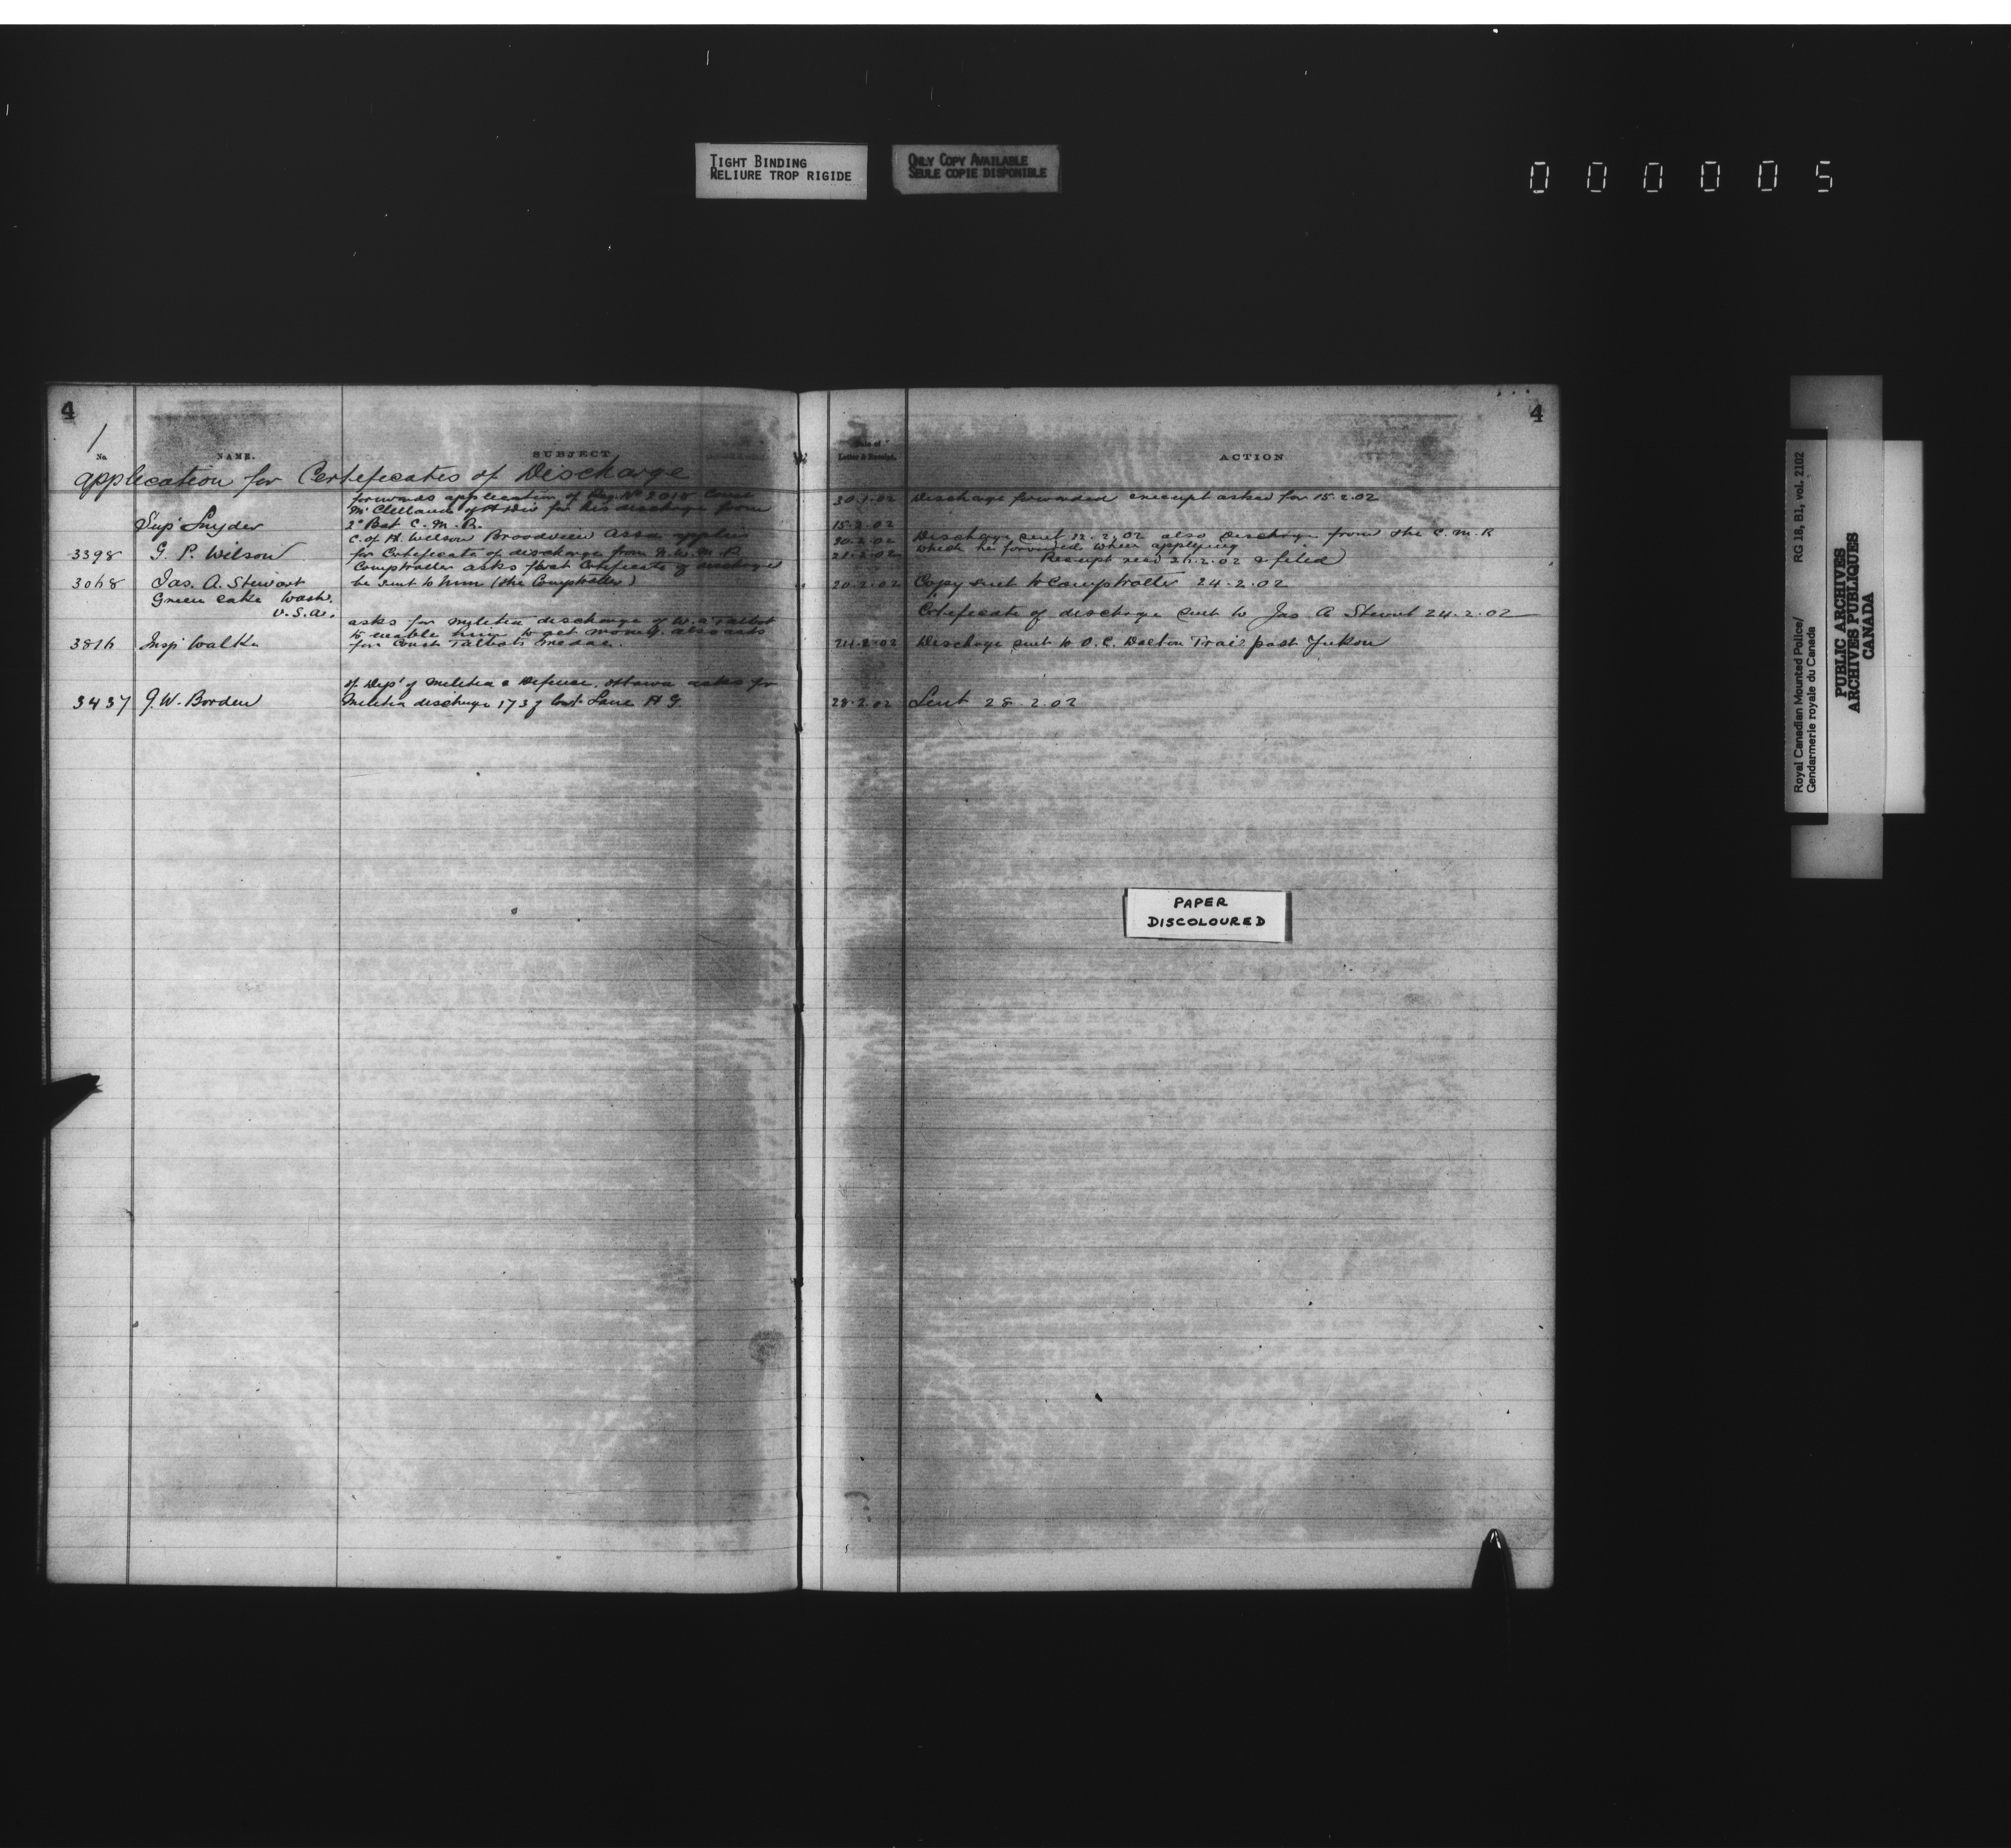 TIGHT BINDING
RELIURE TROP RIGIDE
ONLY COPY AVAILABLE
SEULE COPIE DISPONIBLE
000005
4
4
1
No.
NAME.
SUBJECT
Date of
Letter & Receipt.
ACTION
application for Certificates of Discharge
forwards application of Reg. No 2018 Const
McClelland for his discharge from
Supt Snyder
2d Bat C.M.R.
30.1.02 Discharge forwarded receipt asked for 15.2.02
15.2.02
C. of H. Wilson Broadview Assa applies
3398 G. P. Wilson
for Certificate of discharge from N.W.M.P.
Discharge sent 12.2.02 also Discharge from the C.M.R
21.2.02 which he forwarded when applying
Receipt recd 26.2.02 & filed
Comptroller asks that Certificate of discharge
3068 Jas. A. Stewart
be sent to him (the Comptroller)
20.2.02 Copy sent to Comptroller 24.2.02
Green Lake Wash.
U.S.A.
Certificate of discharge sent to Jas. A Stewart 24.2.02
asks for militia discharge of W. Talbot
to enable him to get money. also asks
3816 Insp Walke
for Const Talbots medal.
24.2.02 Discharge sent to O.C. Dalton Trail post Yukon
of Dept of Militia & Defence. Ottawa asks for
3437 J.W. Borden
Militia discharge 173 of Const. Lane H G.
28.2.02 Sent 28.2.02
PAPER
DISCOLOURED
Royal Canadian Mounted Police/ RG 18, B1, vol. 2102
Gendarmerie royale du Canada
PUBLIC ARCHIVES
ARCHIVES PUBLIQUES
CANADA